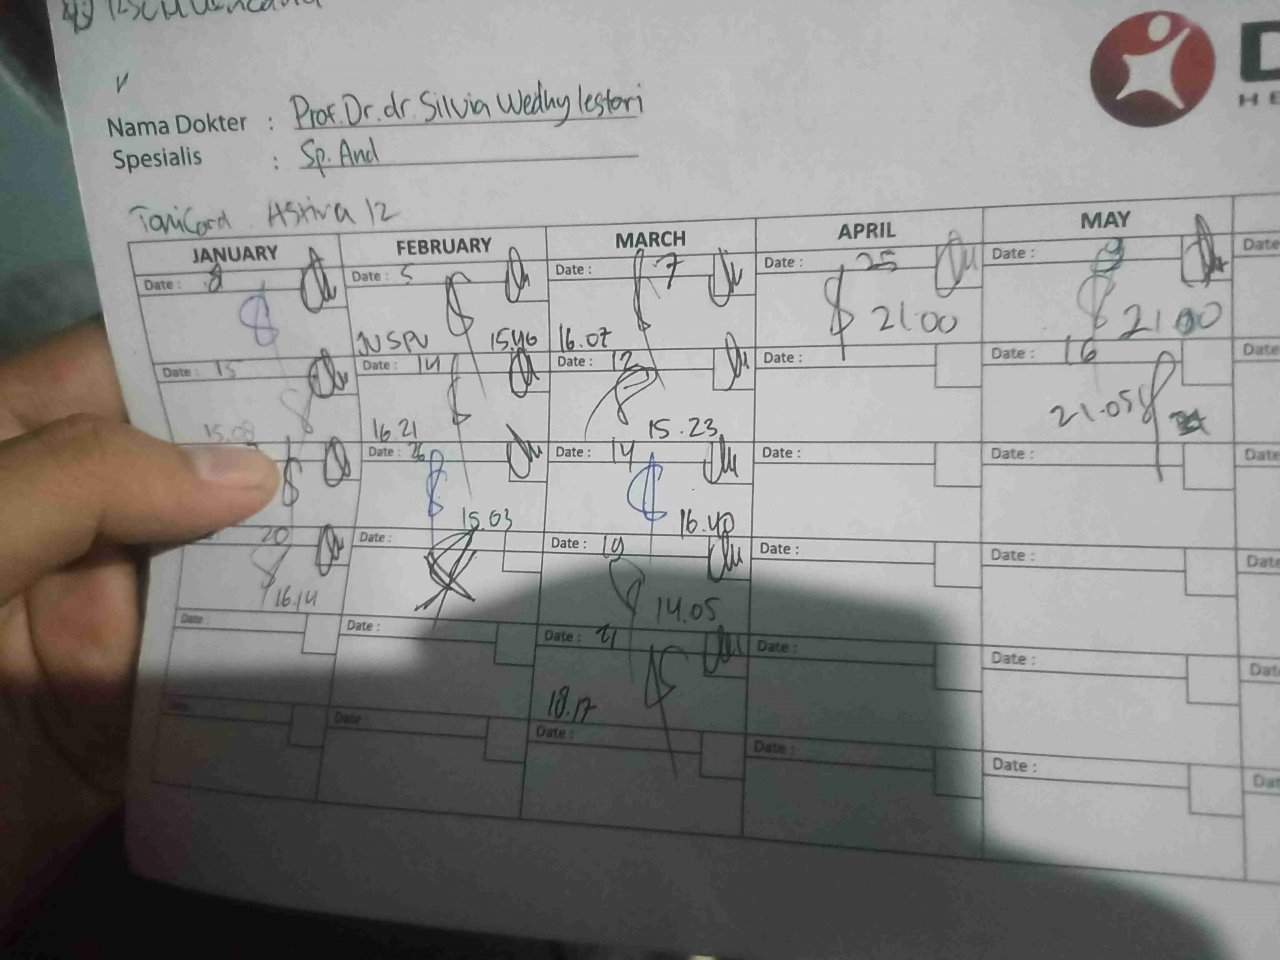 Nama Dokter : Prof. Dr. dr. Silvia Wedhy lestari
Spesialis : Sp. And
Astiva 12
JANUARY FEBRUARY MARCH APRIL MAY
Date : 8 Date : 5 Date : 7 Date : 25 Date : 9
21.00 21.00
JUSPU 15.46 16.07
Date : 15 Date : 14 Date : 12 Date : Date : 16 Date
15.08 16.21 15.23 21.05
Date : 26 Date : 14 Date : Date : Date
15.03 16.40
20 Date : Date : 19 Date : Date : Date
16.14 14.05
Date : Date : Date : 21 Date : Date : Date
18.17
Date : Date : Date : Date : Date